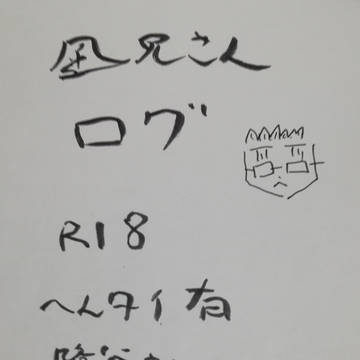 凪兄さん
ログ
R18
へんタイ有